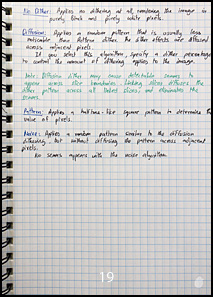 No Dither: Applies no dithering at all, rendering the image in
purely black and purely white pixels.
Diffusion: Applies a random pattern that is usually less
noticeable than Pattern dither. The dither effects are diffused
across adjacent pixels.
If you select this algorithm, specify a dither percentage
to control the amount of dithering applied to the image.
Note: Diffusion dither may cause detectable seams to
appear across slice boundaries. Linking slices diffuses the
dither pattern across all linked slices, and eliminates the
seams.
Pattern: Applies a halftone-like square pattern to determine the
value of pixels.
Noise: Applies a random pattern similar to the diffusion
dithering, but without diffusing the pattern across adjacent
pixels.
No seams appear with the noise algorithm.
19